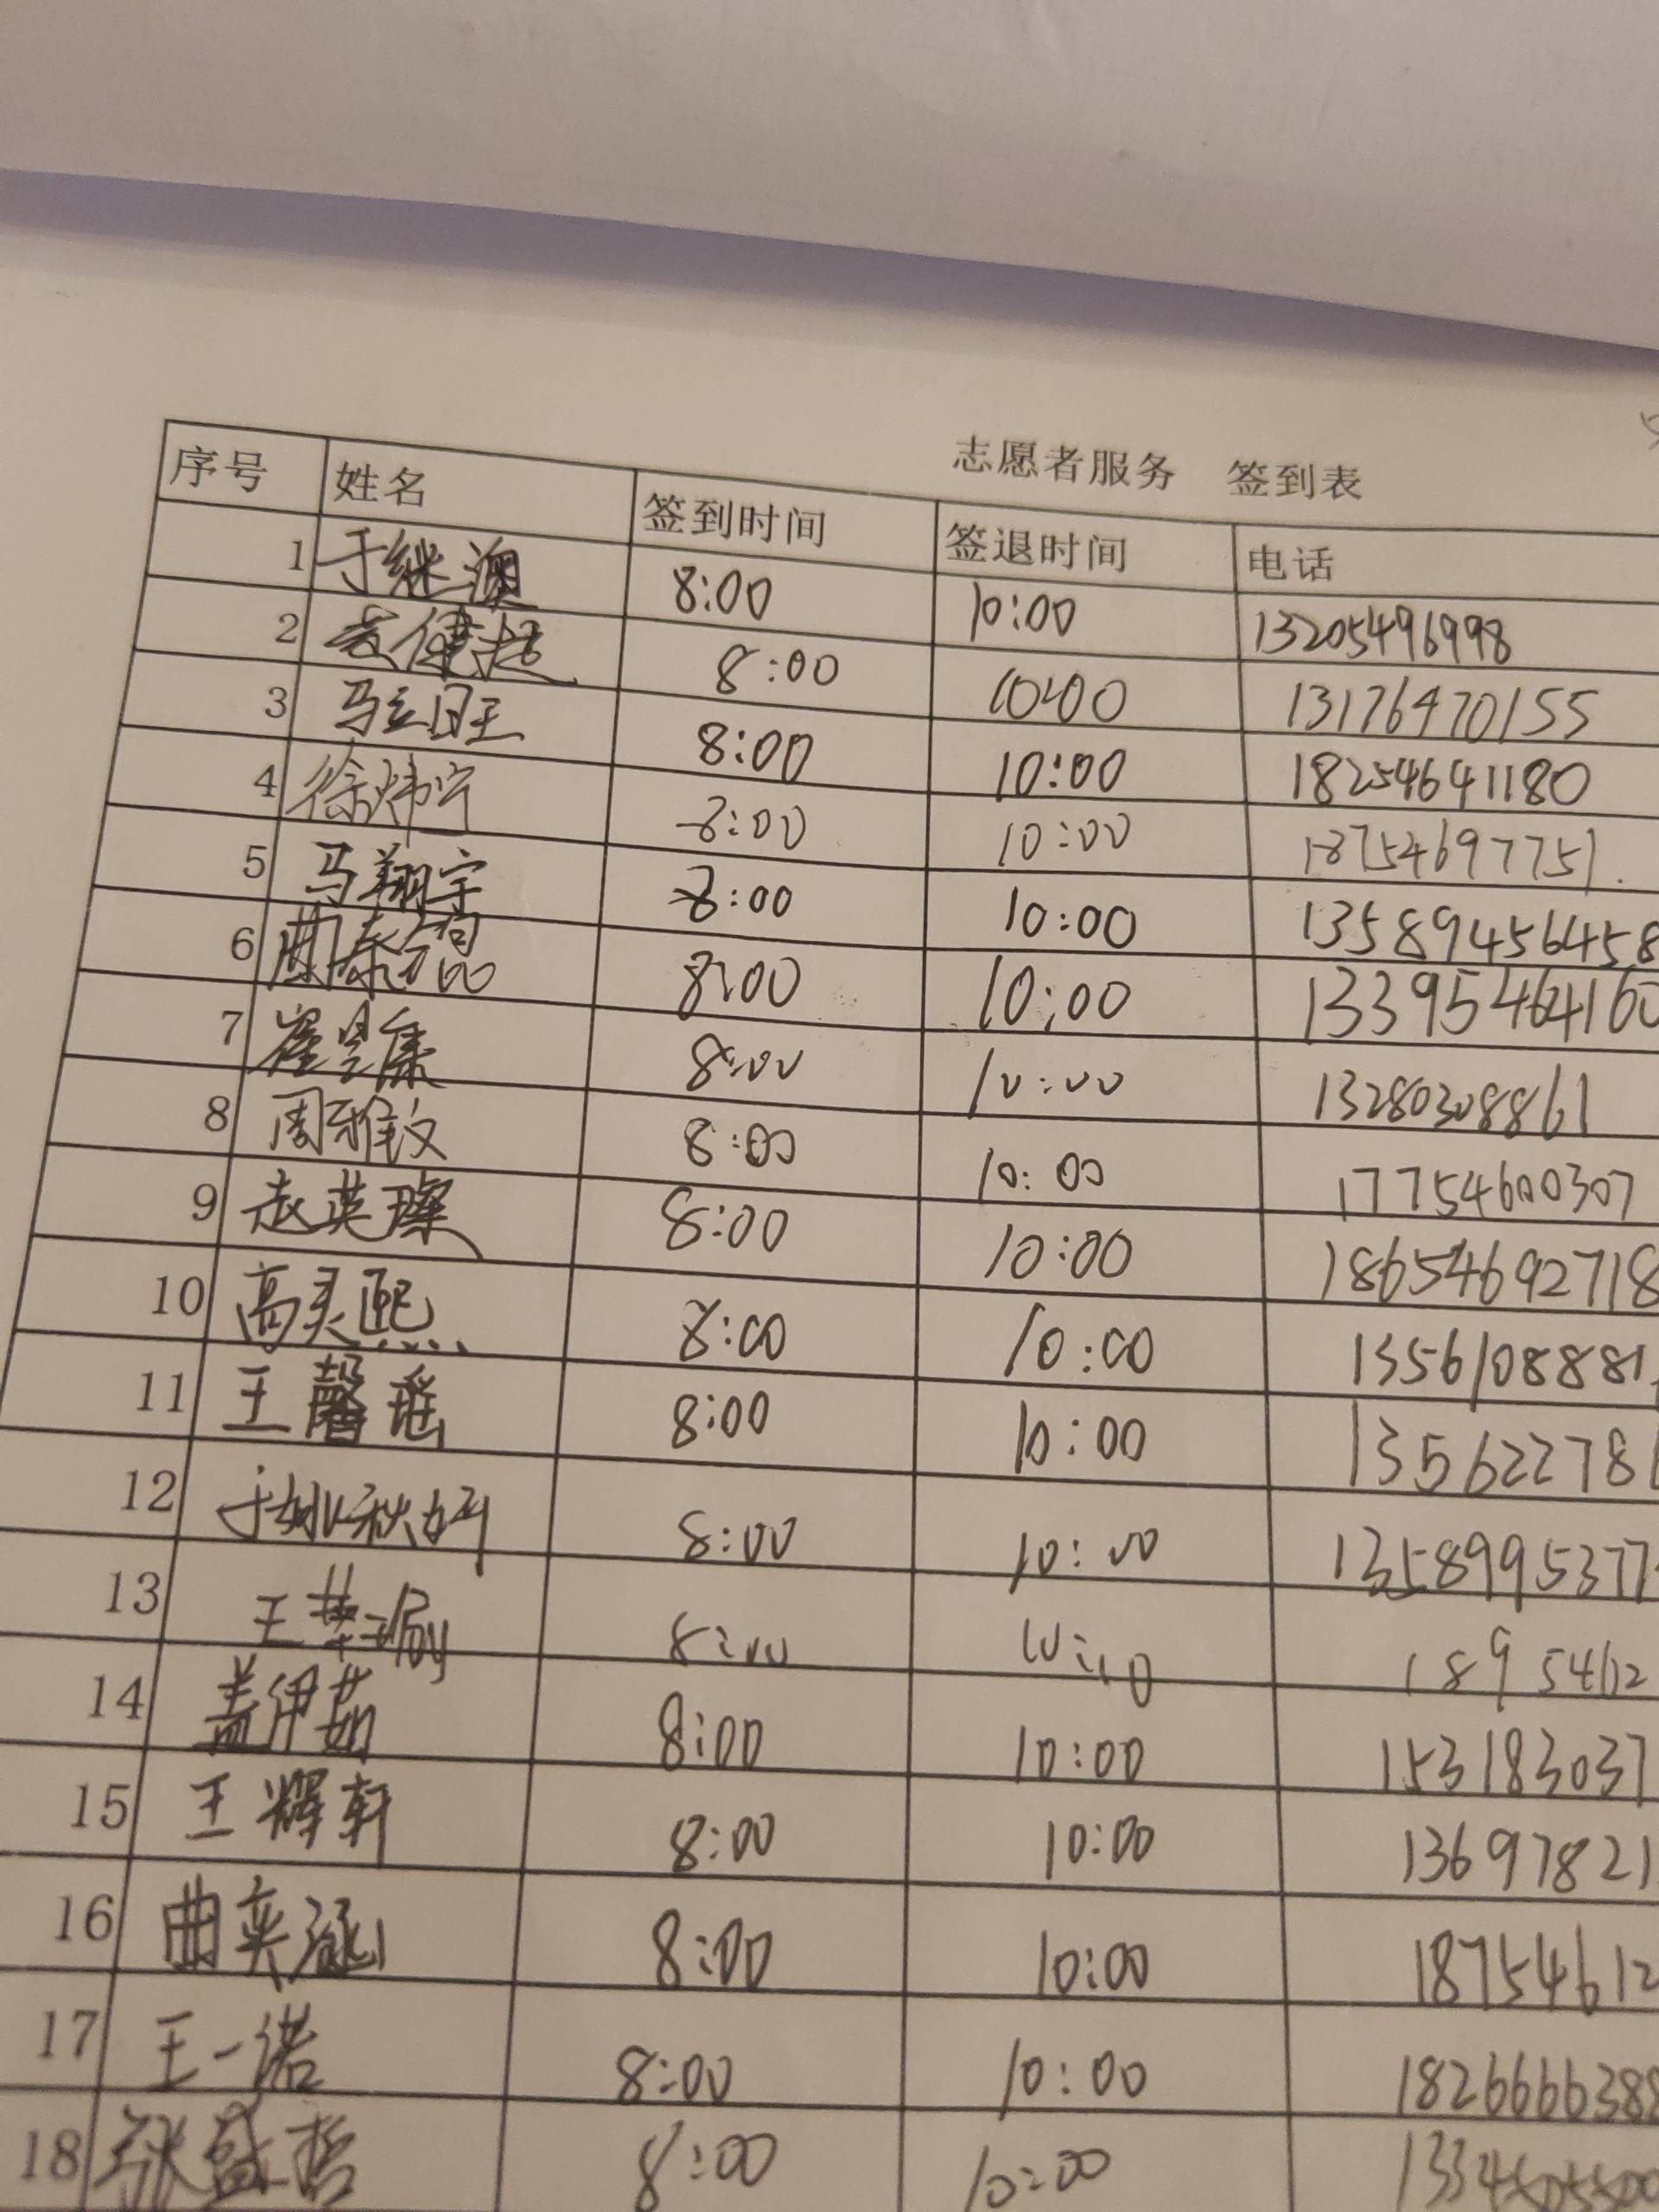 志愿者服务 签到表
序号 姓名 签到时间 签退时间 电话
1 于继澳 8:00 10:00 13205496998
2 8:00 10:00 13176470155
3 马立旺 8:00 10:00 18254641180
4 徐炜宁 8:00 10:00 18754697751.
5 马翔宇 8:00 10:00 13589456458
6 曲泰 8:00 10:00 13395464160
7 崔昱集 8:00 10:00 13280308861
8 周雅文 8:00 10:00 17754600307
9 赵英璨 8:00 10:00 18654692718
10 高灵熙 8:00 10:00 1356108881
11 王馨瑶 8:00 10:00 135622781
12 于姚秋妍 8:00 10:00 1358995377
13 王 8:00 10:00 1895462
14 盖伊茹 8:00 10:00 153183037
15 王辉轩 8:00 10:00 13697821
16 曲奕涵 8:00 10:00 18754612
17 王一诺 8:00 10:00 1826666388
18 张盛哲 8:00 10:00